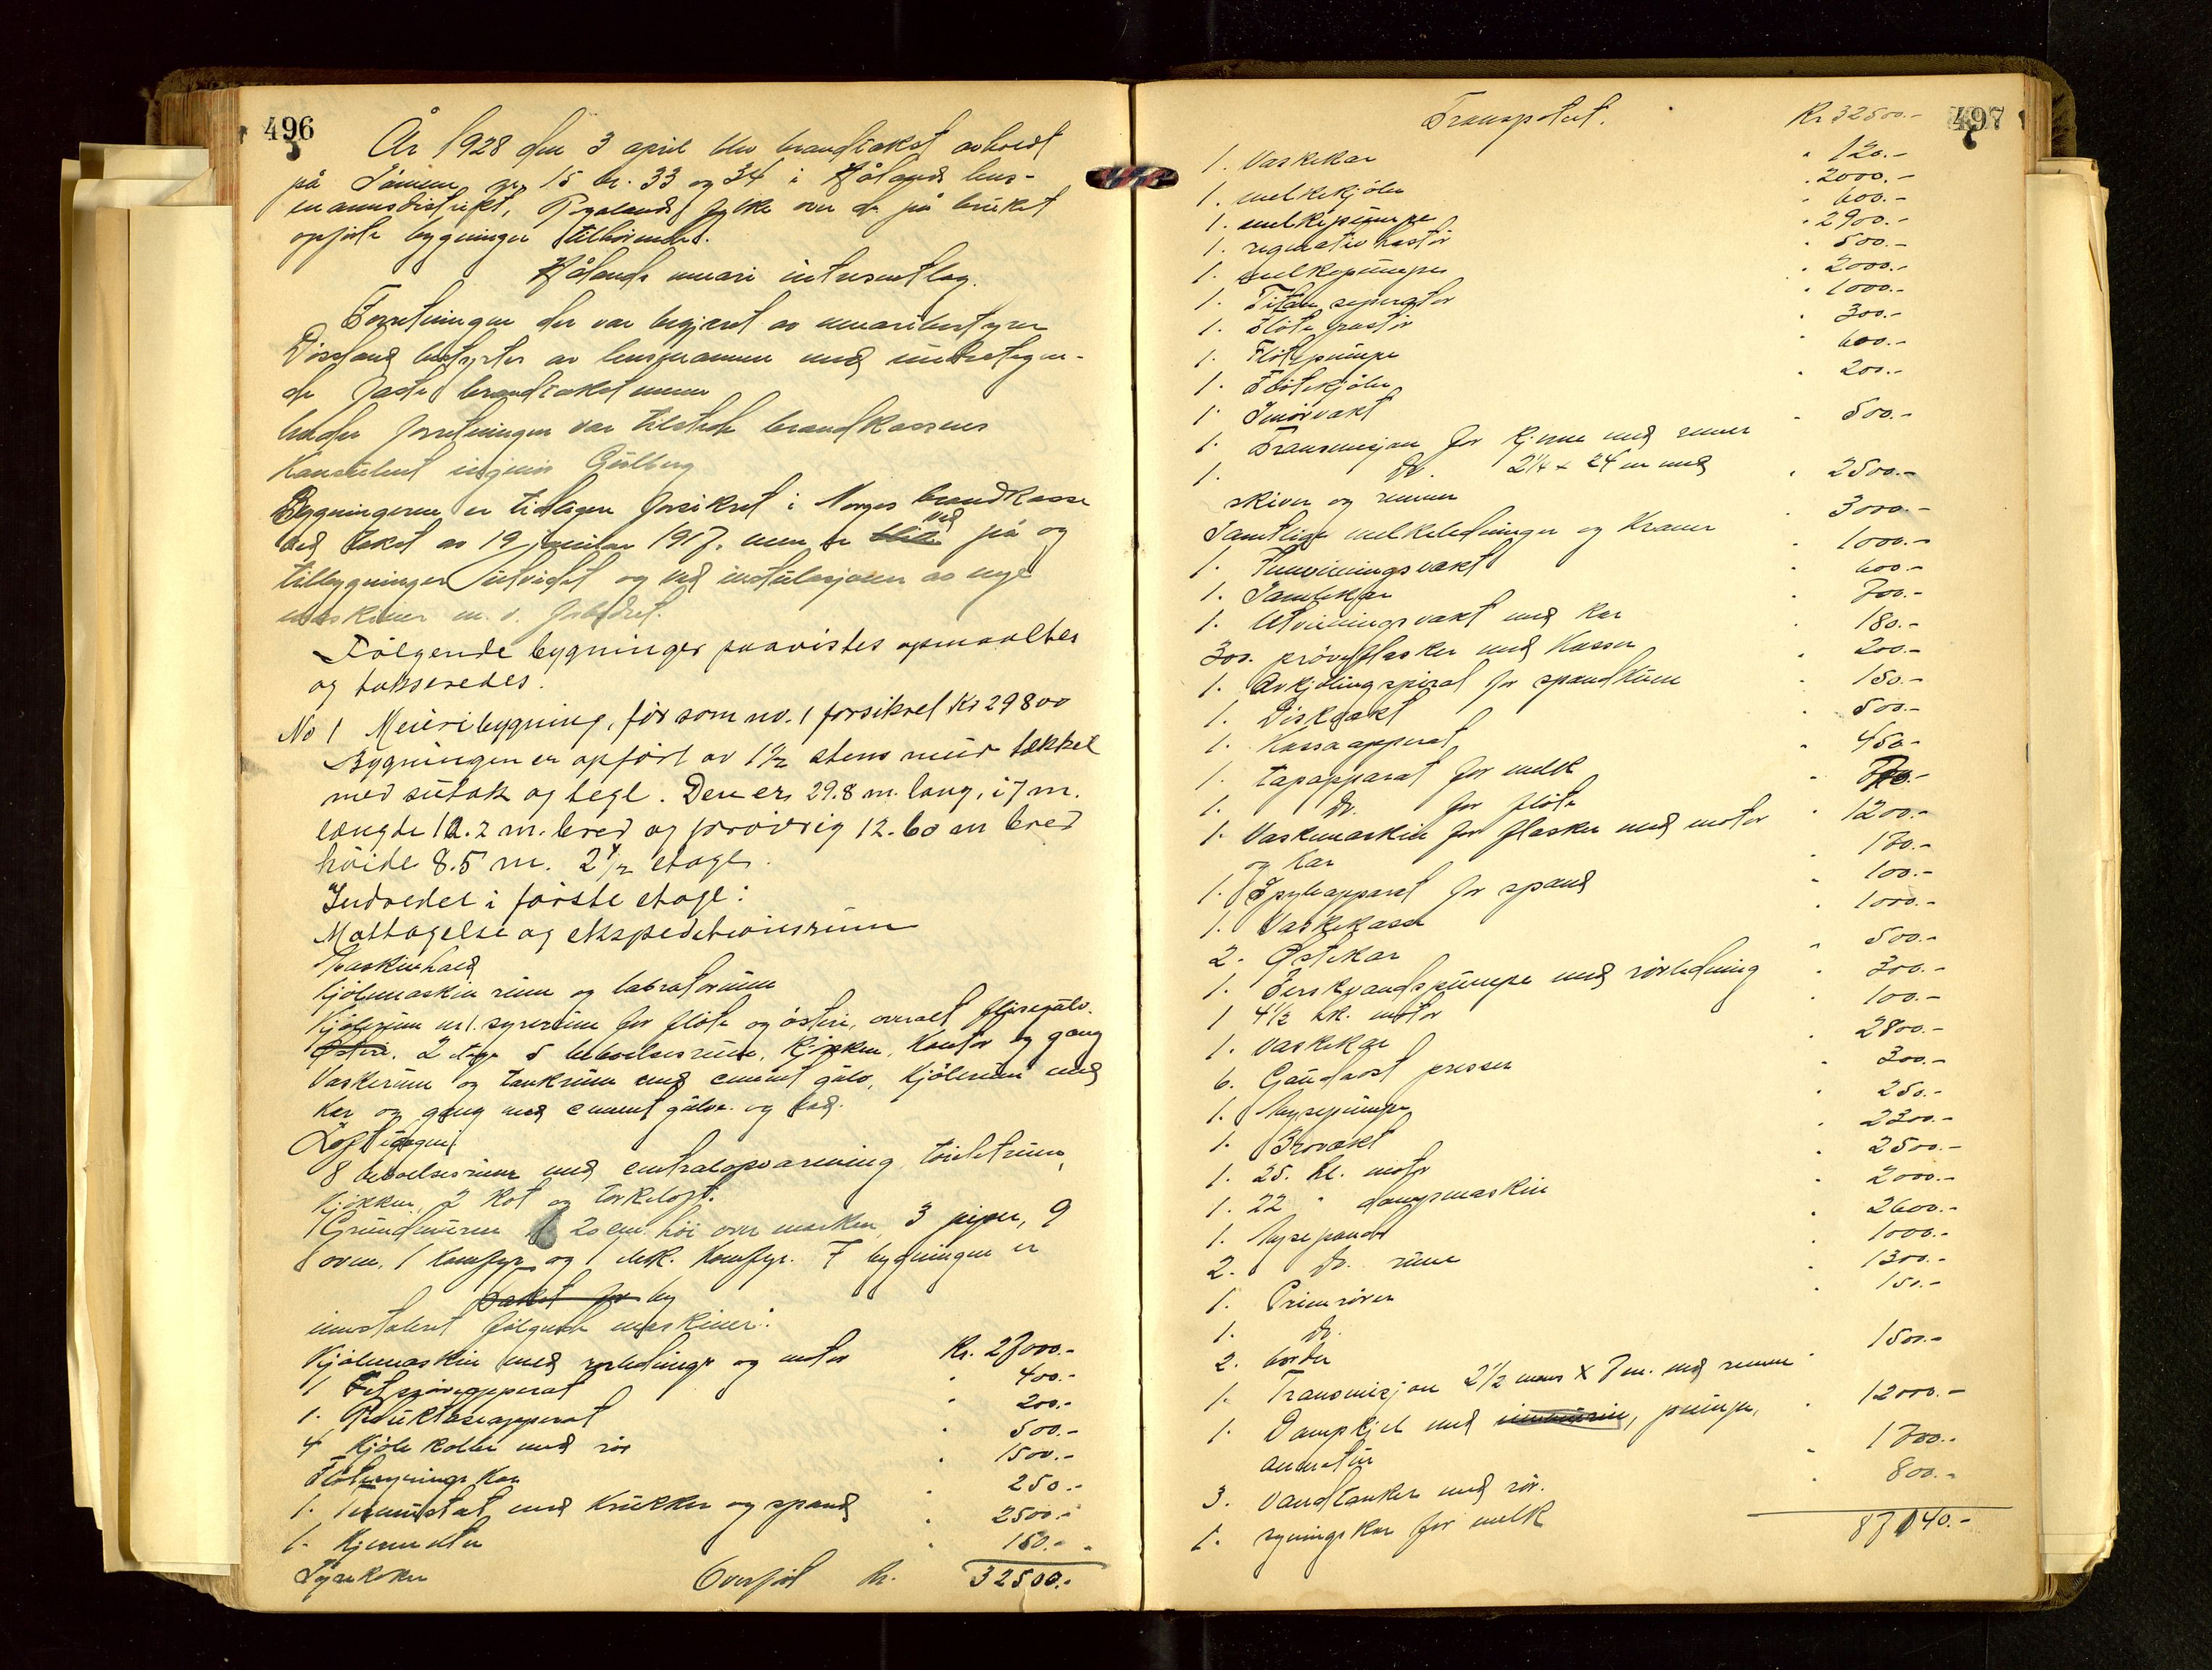 496
År 1928 den 3 april blev brandtakst avholdt
på Sömme gr. 15 br. 33 og 34 i Hålands lens-
mannsdistrikt, Rogalands fylke over de på bruket
opførte bygninger tilhörende.
Hålands meieri interesentlag.
Forretningen der var begjært av meieribestyrer
Düssland bestyrtes av lensmannen med undertegne-
de faste brandtakstmenn
Under forretningen var tilstede brandkassens
Konsulent ingeniör Gulberg
Bygningerne er tidligere forsikret i Norges brandkasse
ved takst av 19 januar 1917, men er ved på og
tilbygninger utvidet og ved installasjoner av nye
maskiner m. v. forbedret.
Fölgende bygninger paavistes opmaaltes
og takseredes.
No 1 Meieribygning, för som no. 1 forsikret Kr 29800
Bygningen er opfört av 1½ stens mür tækket
med sütak og tegl. Den er 29.8 m. lang, i 7 m.
længde 12.2 m. bred og forövrig 12.60 m bred
höide 8.5 m. 2½ etage.
Indredet i förste etage:
Mottagelse og ekspeditionsrüm
Maskinhald
Kjölemaskin rüm og labratorium
Kjölerüm m. 1. syrerüm for flöte og österi, overalt flisegülv.
Österi. 2 etage 5 beboelsesrüm, Kjökken, Kontor og gang
Vaskerüm og tankrüm med cement gülv, Kjölerüm med
Kar og gang med cement gülv. og bad.
Loftetagen:
8 beboelsesrüm med centralopvarmning, toiletrüm,
Kjökken, 2 Kot og törkeloft.
Grundmüren 20 cm. höi over marken, 3 piper, 9
oven, 1 Komfyr og 1 elek. Komfyr. I bygningen er
takst for by
installert fölgende maskiner:
Kjölemaskin med rörledninger og motor Kr. 27000.-
1 Fetpröveapparat " 400.-
1. Reduktaseapparat " 200.-
4 Kjöle kolber med rör " 500.-
Flötesyrnings Kar " 1500.-
1. Termostat med Krükker og spand " 250.-
1. Kjerne elter " 2500.-
Syrekoker " 150.-
Overfört Kr. 32500.-
497
Transportert. Kr 32500.-
1. Vaskekar " 120.-
1. melkekjöler " 2000.-
1. melkepumpe " 600.-
1. regenerativ pastör " 2900.-
1. melkepumpe " 500.-
1. Titan seperator " 2000.-
1. Flöte pastör " 1000.-
1. Flötepumpe " 300.-
1. Flötekjöler " 600.-
1. Smörvekt " 200.-
1. Transmisjon for Kjerne med remer " 500.-
1. Do. 2¼ x 24 m med
skiver og remmer " 2500.-
Samtlige melkeledninger og Kraner " 3000.-
1. Innveiningsvekt " 1000.-
1. Samlekar " 600.-
1. Utveiningsvekt med Kar " 700.-
300. pröveflasker med Kasser " 180.-
1. Avkjölingspiral for spandküm " 200.-
1. Diskvekt " 150.-
1. Kassaapparat " 500.-
1. tapapparat for melk " 450.-
1. Do. for flöte
1. Vaskemaskin for flasker med motor
og Kar " 1200.-
1. Spyleapparat for spand " 170.-
1. Vaskekasse " 100.-
2. Østekar " 1000.-
1. Ferskvandspumpe med rörledning " 500.-
1 4½ hk. motor " 300.-
1. vaskekar " 100.-
6. Gaudaost presser " 2800.-
1. Mysepumpe " 300.-
1. Brovekt " 250.-
1. 25. hk. motor " 2300.-
1. 22 " dampmaskin " 2500.-
1. Mysepande " 2000.-
2. Do. rüne " 2600.-
1. Primrörer " 1000.-
1. Do. " 1300.-
2. border " 150.-
1. Transmisjon 2½ mans x 7 m. med remme " 1500.-
1. Dampkjel med pumpe,
armatür " 12000.-
3. vandtanker med rör. " 1700.-
1. syrningskar for melk " 800.-
87040.-